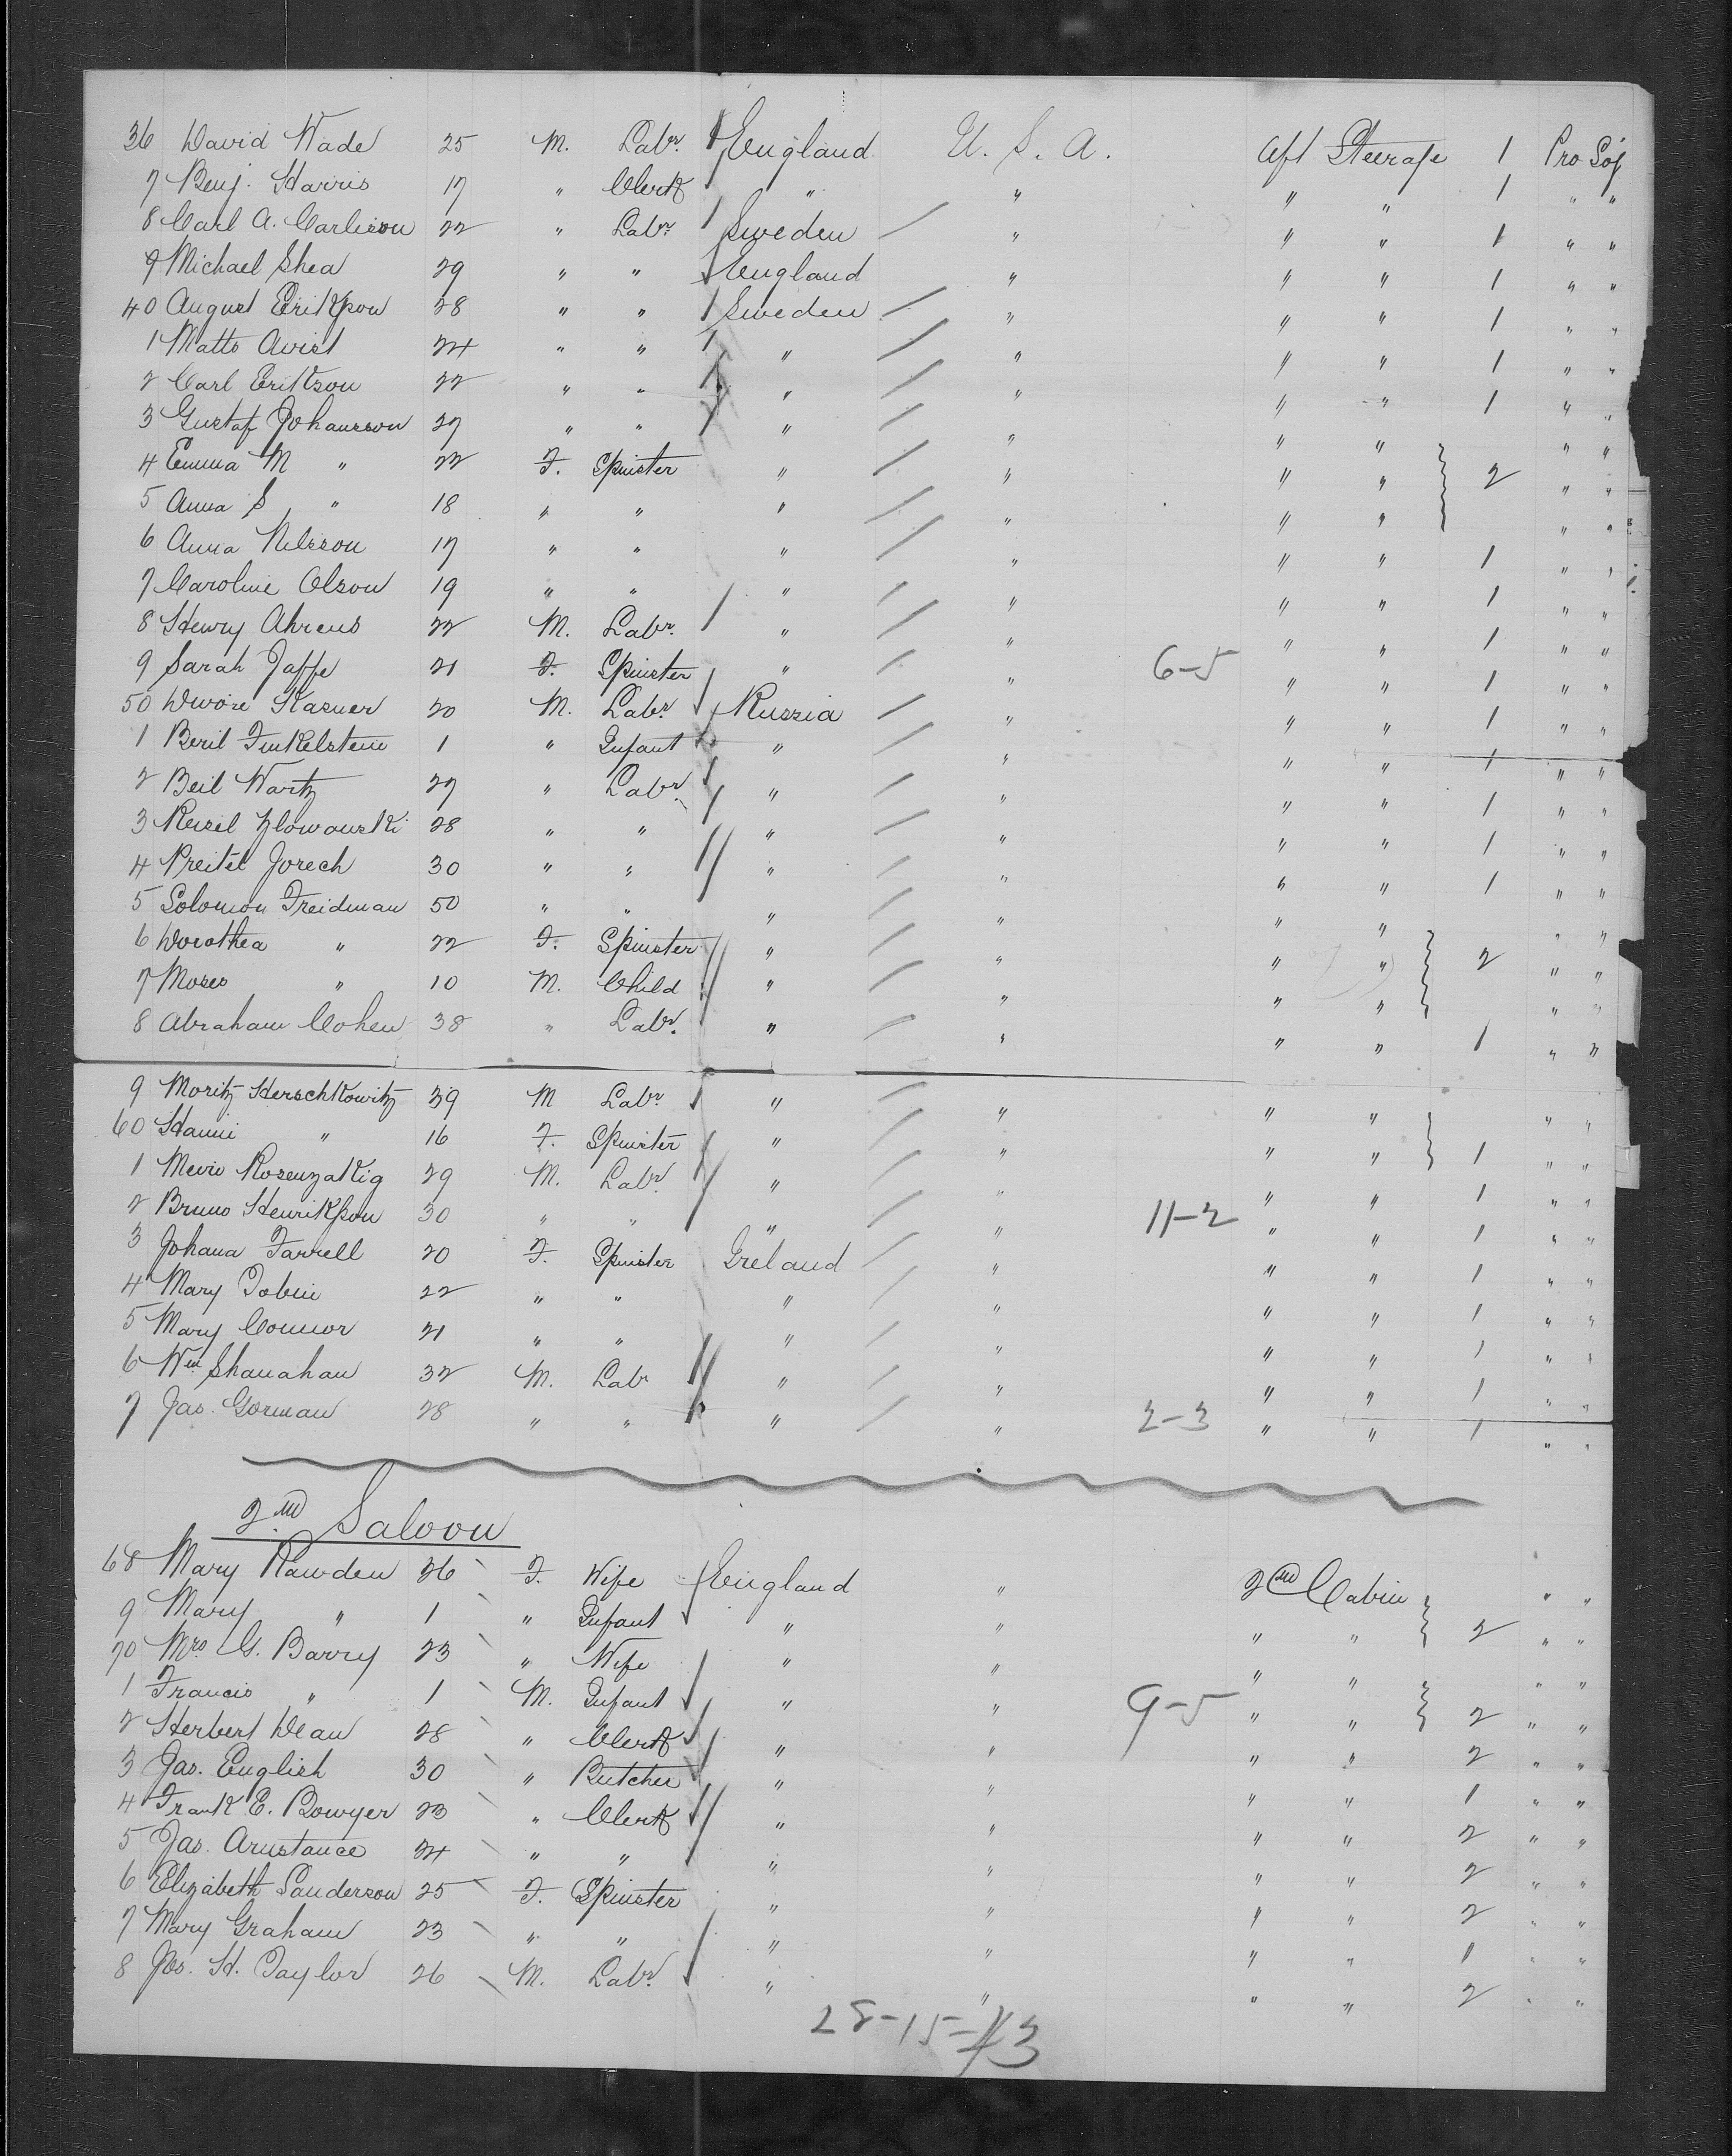 36 David Wade 25 M. Labr. England U. S. A. Aft Steerage 1 Pro Soj
7 Benj. Harris 17 " Clerk " " " " 1 " "
8 Carl A. Carlsson 22 " Labr. Sweden " " " 1 " "
9 Michael Shea 29 " " England " " " 1 " "
40 August Erikson 28 " " Sweden " " " 1 " "
1 Matts Qvist 24 " " " " " " 1 " "
2 Carl Erikson 22 " " " " " " 1 " "
3 Gustaf Johansson 27 " " " " " " " "
4 Emma M " 22 F. Spinster " " " " 2 " "
5 Anna S " 18 " " " " " " " "
6 Anna Nilsson 17 " " " " " " 1 " "
7 Caroline Olson 19 " " " " " " 1 " "
8 Henry Ahrens 22 M. Labr. " " " " 1 " "
9 Sarah Jaffe 21 F. Spinster " " 6-5 " " 1 " "
50 Kasner 20 M. Labr. Russia " " " 1 " "
1 Beril Finkelstein 1 " Infant " " " " 1 " "
2 Beil Wartz 27 " Labr. " " " " 1 " "
3 28 " " " " " " 1 " "
4 Jorech 30 " " " " " " 1 " "
5 Solomon Freidman 50 " " " " " " " "
6 Dorothea " 22 F. Spinster " " " " 2 " "
7 Moses " 10 M. Child " " " " " "
8 Abraham Cohen 38 " Labr. " " " " 1 " "
9 Moritz Herschkowitz 39 M Labr. " " " " " "
60 Hanni " 16 F. Spinster " " " " 1 " "
1 29 M. Labr. " " " " 1 " "
2 Bruno Henrikson 30 " " " " 11-2 " " 1 " "
3 Johana Farrell 20 F. Spinster Ireland " " " 1 " "
4 Mary Tobin 22 " " " " " " 1 " "
5 Mary Connor 21 " " " " " " 1 " "
6 Wm Shanahan 32 M. Labr " " " " 1 " "
7 Jas. Gorman 28 " " " " 2-3 " " 1 " "
2nd Saloon
68 Mary Rawden 36 F. Wife England " 2nd Cabin " "
9 Mary " 1 " Infant " " " " 2 " "
70 Mrs G. Barry 23 " Wife " " " " " "
1 Francis " 1 M. Infant " " 9-5 " " 2 " "
2 Herbert Dean 28 " Clerk " " " " 2 " "
3 Jas. English 30 " Butcher " " " " 1 " "
4 Frank E. Bowyer 23 " Clerk " " " " 2 " "
5 Jas. Arustance 34 " " " " " " 2 " "
6 Elizabeth Sanderson 25 F. Spinster " " " " 2 " "
7 Mary Graham 23 " " " " " " 1 " "
8 Jos. H. Taylor 26 M. Labr. " " " " 2 " "
28-15=43